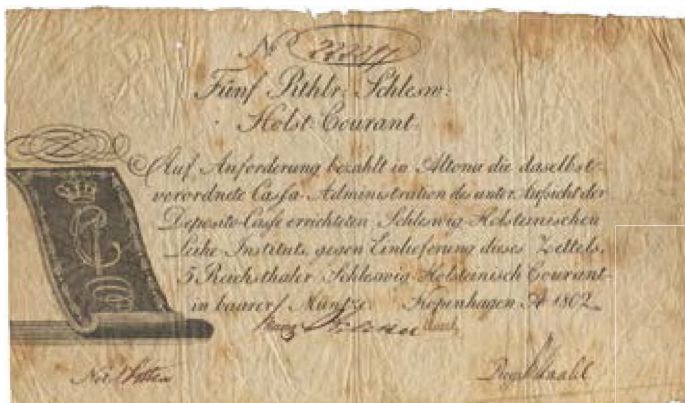 No
Fünf Rthlr: Schlesw:
Holst Courant.
Auf Anforderung bezahlt in Altona die daselbst
verordnete Cassa-Administration des unter Aufsicht der
Deposito-Casse errichteten Schleswig-Holsteinischen
Leihe-Instituts, gegen Einlieferung dieses Zettels,
5 Reichsthaler Schleswig-Holsteinisch Courant
in baarer Müntze. Kopenhagen Ao 1802
Not